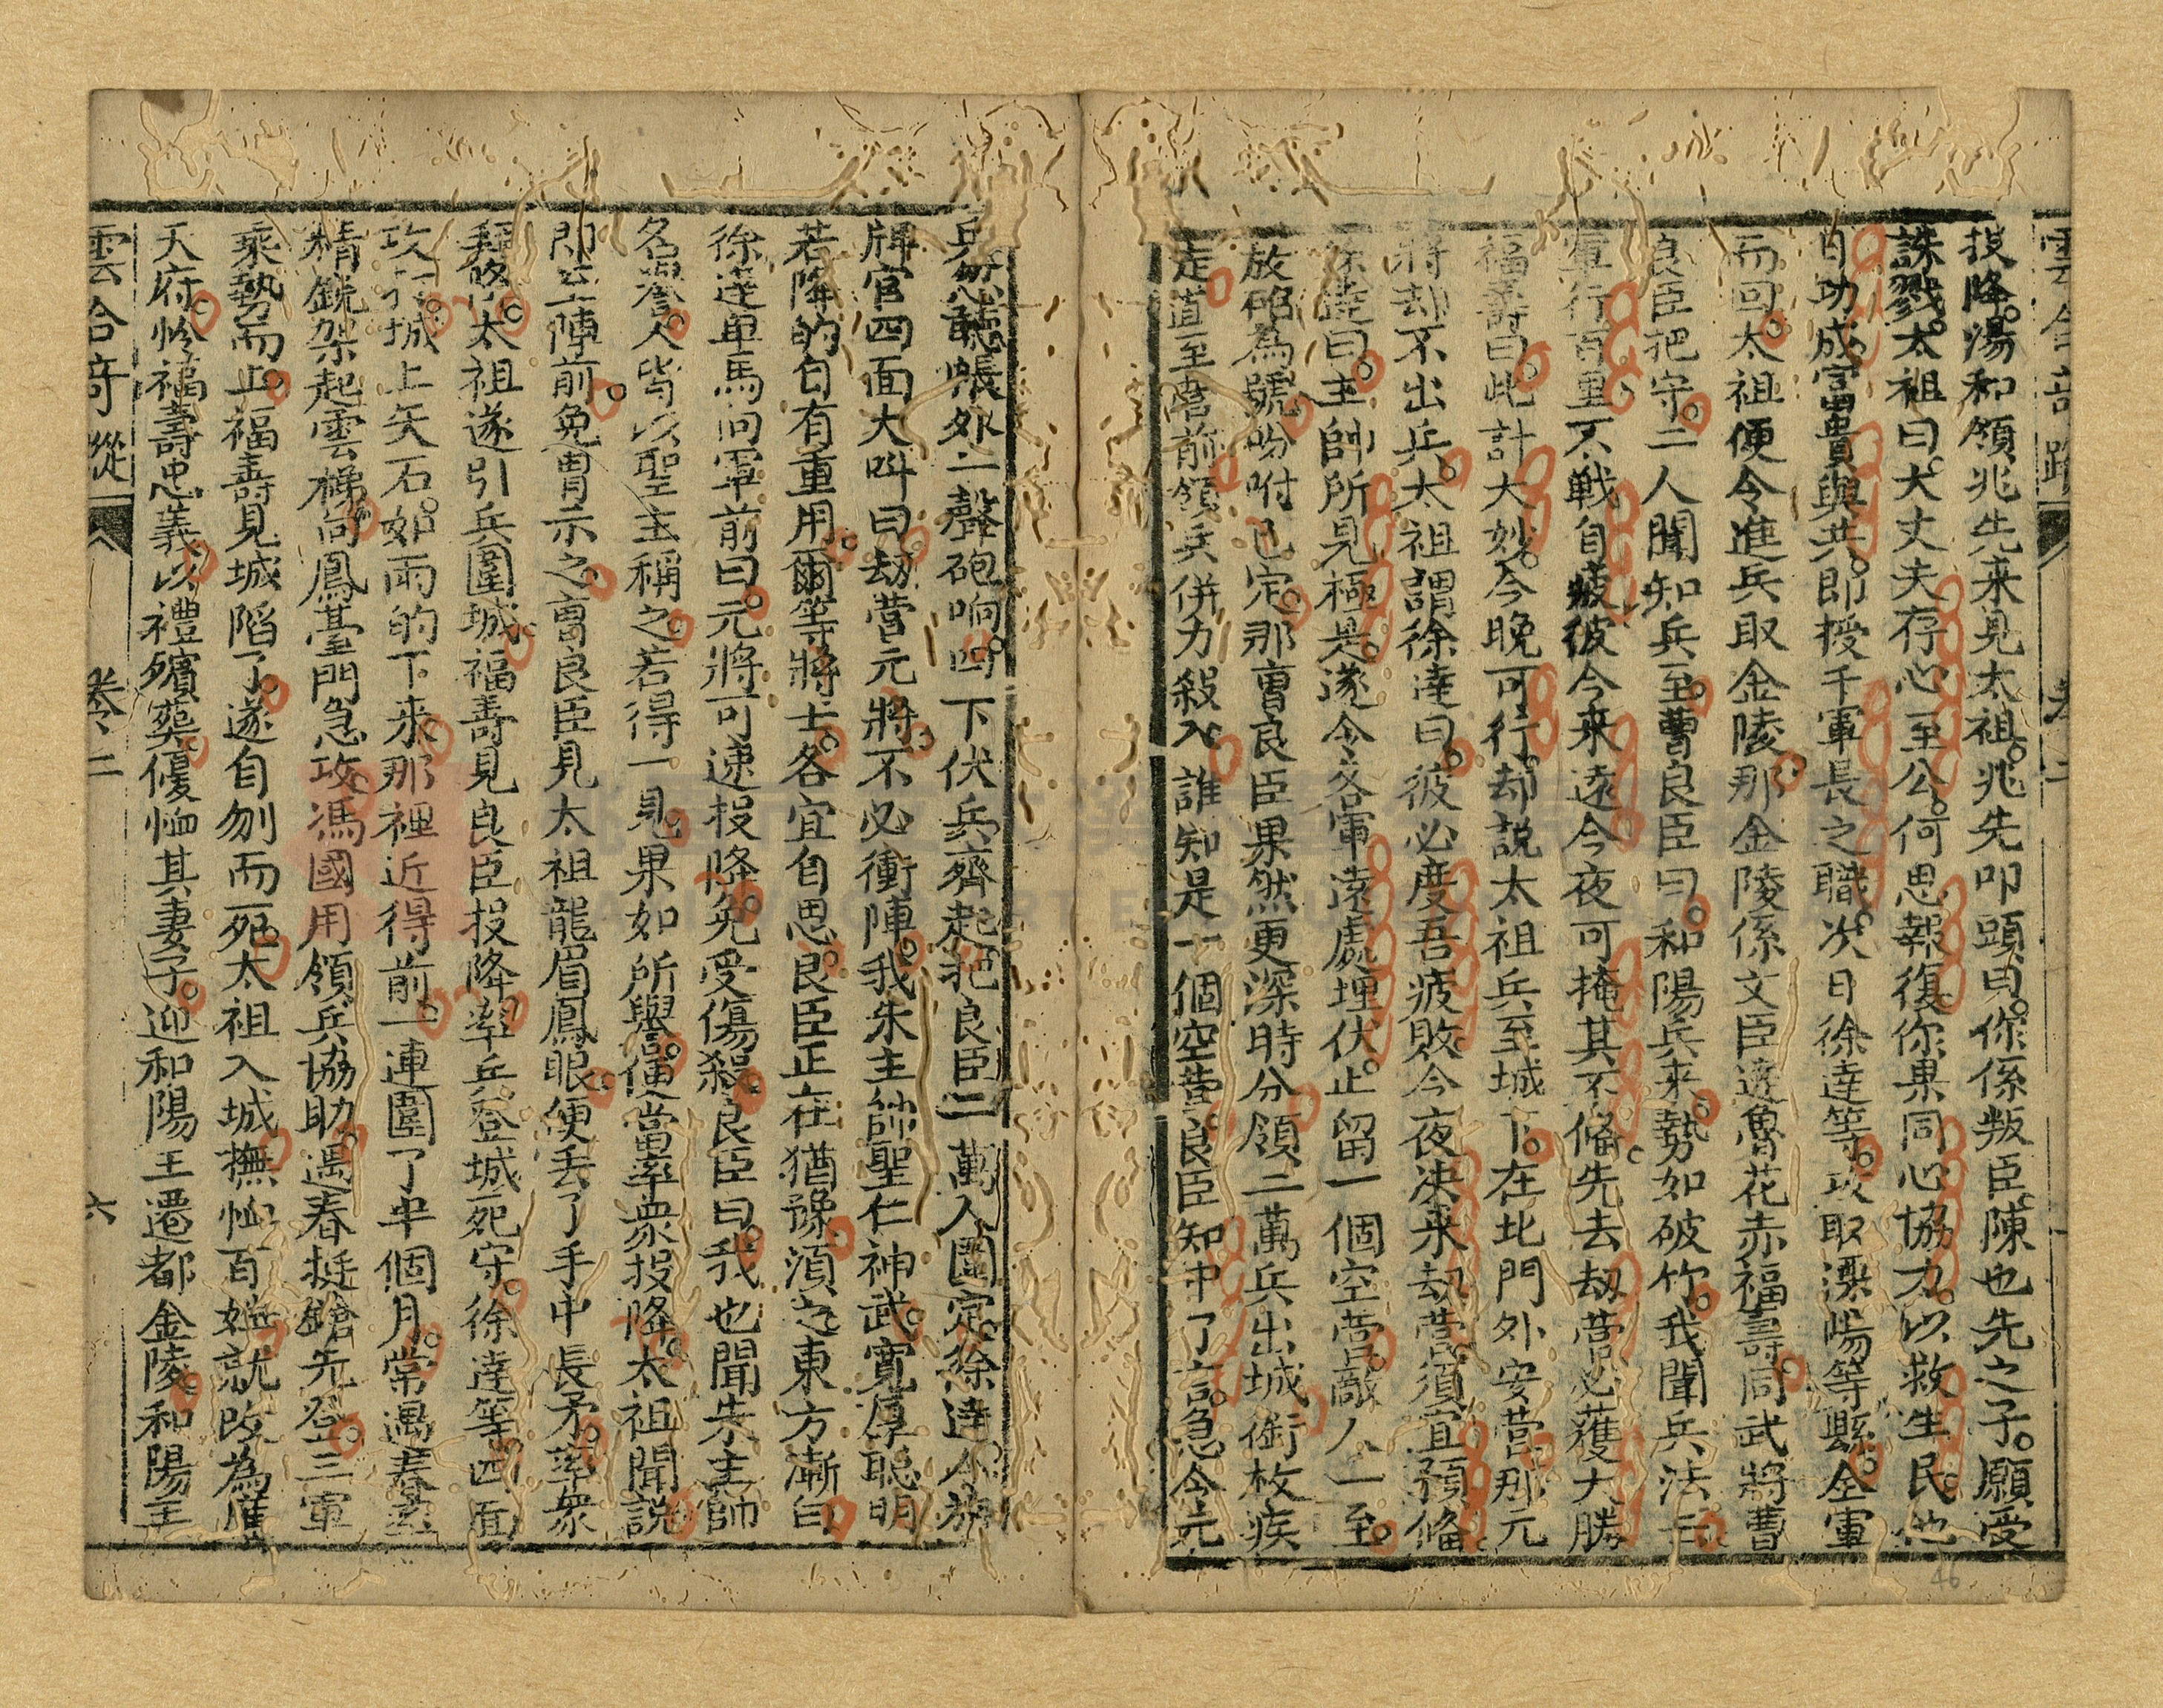 雲合奇蹤
卷二
投降湯和領兆先来見太祖兆先叩頭曰你係叛臣陳也先之子願受
誅戮太祖曰大丈夫存心至公何思報復你果同心協力以救生民他
日功成富貴與共即授千軍長之職次日徐達等攻取溧陽等縣全軍
而回太祖便令進兵取金陵那金陵係文臣達魯花赤福壽同武將曹
良臣把守二人聞知兵至曹良臣曰和陽兵来勢如破竹我聞兵法云
軍行百里不戰自疲彼今来遠今夜可掩其不俻先去刼营必獲大勝
福壽曰此計大妙今晚可行却説太祖兵至城下在北門外安营那元
將却不出兵太祖謂徐達曰彼必度吾疲敗今夜决来刼营須宜預俻
徐達曰主帥所見極是遂令各軍遠處埋伏止留一個空营敵人一至
放砲為號吩咐已定那曹良臣果然更深時分領二萬兵出城銜枚疾
走道至营前領兵併力殺入誰知是一個空营良臣知中了計急令
兵 聽帳外一聲砲响四下伏兵齊起把良臣二萬人圍定徐達令旗
牌官四面大叫曰刼营元將不必衝陣我朱主帥聖仁神武寛厚聪明
若降的自有重用爾等將士各宜自思良臣正在猶豫湏之東方漸白
徐達单馬向軍前曰元將可速投降免受傷殺良臣曰我也聞朱主帥
名譽人皆以聖主稱之若得一見果如所舉僅當率衆投降太祖聞説
即至陣前免胄示之曹良臣見太祖龍眉鳳眼便丢了手中長矛率衆
拜降太祖遂引兵圍城福壽見良臣投降率兵登城死守徐達等四面
攻打城上矢石如雨的下来那裡近得前一連圍了半個月常遇春
精銳架起雲梯向鳳臺門急攻馮國用領兵協助遇春挺鎗先登三軍
乘勢而上福壽見城陷了遂自刎而死太祖入城撫恤百姓就改為應
天府怜福壽忠義以禮殯葬優恤其妻子迎和陽王遷都金陵和陽王
雲合奇蹤
卷二
六
46